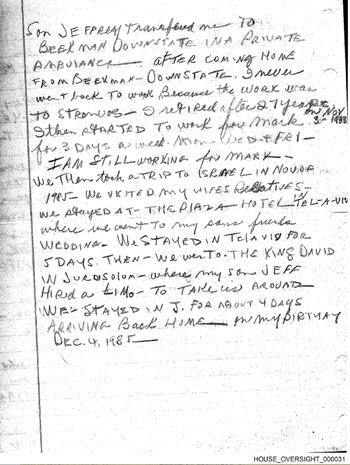 Son JEFFREY transfered me TO
BEEKMAN DOWNSTATE IN A PRIVATE
AMBULANCE. after coming HOME
FROM BEEKMAN-DOWNSTATE. I never
went back TO work Because the WORK was
TO STRENOUS - I retired after 27 years
I then STARTED TO work for Mark on NOV
for 3 DAYS a week. Mon - Wed + FRI -
I AM STILL WORKING for MARK -
We Then took a TRIP TO ISRAEL IN NOV OF
1985 - We VISITED my WIFES RELATIVES -
we stayed AT - THE PLAZA HOTEL IN TEL-A-VIV
where we went to my sons friends
WEDDING. We STAYED IN TELAVIV FOR
5 DAYS. THEN - We went TO - THE KING DAVID
IN Jurosolom - where my son JEFF
HIRED a LIMO - TO TAKE US AROUND
WE - STAYED IN J. FOR about 4 DAYS
ARRIVING Back HOME on my BIRTHAY
DEC. 4, 1985
HOUSE_OVERSIGHT_000031